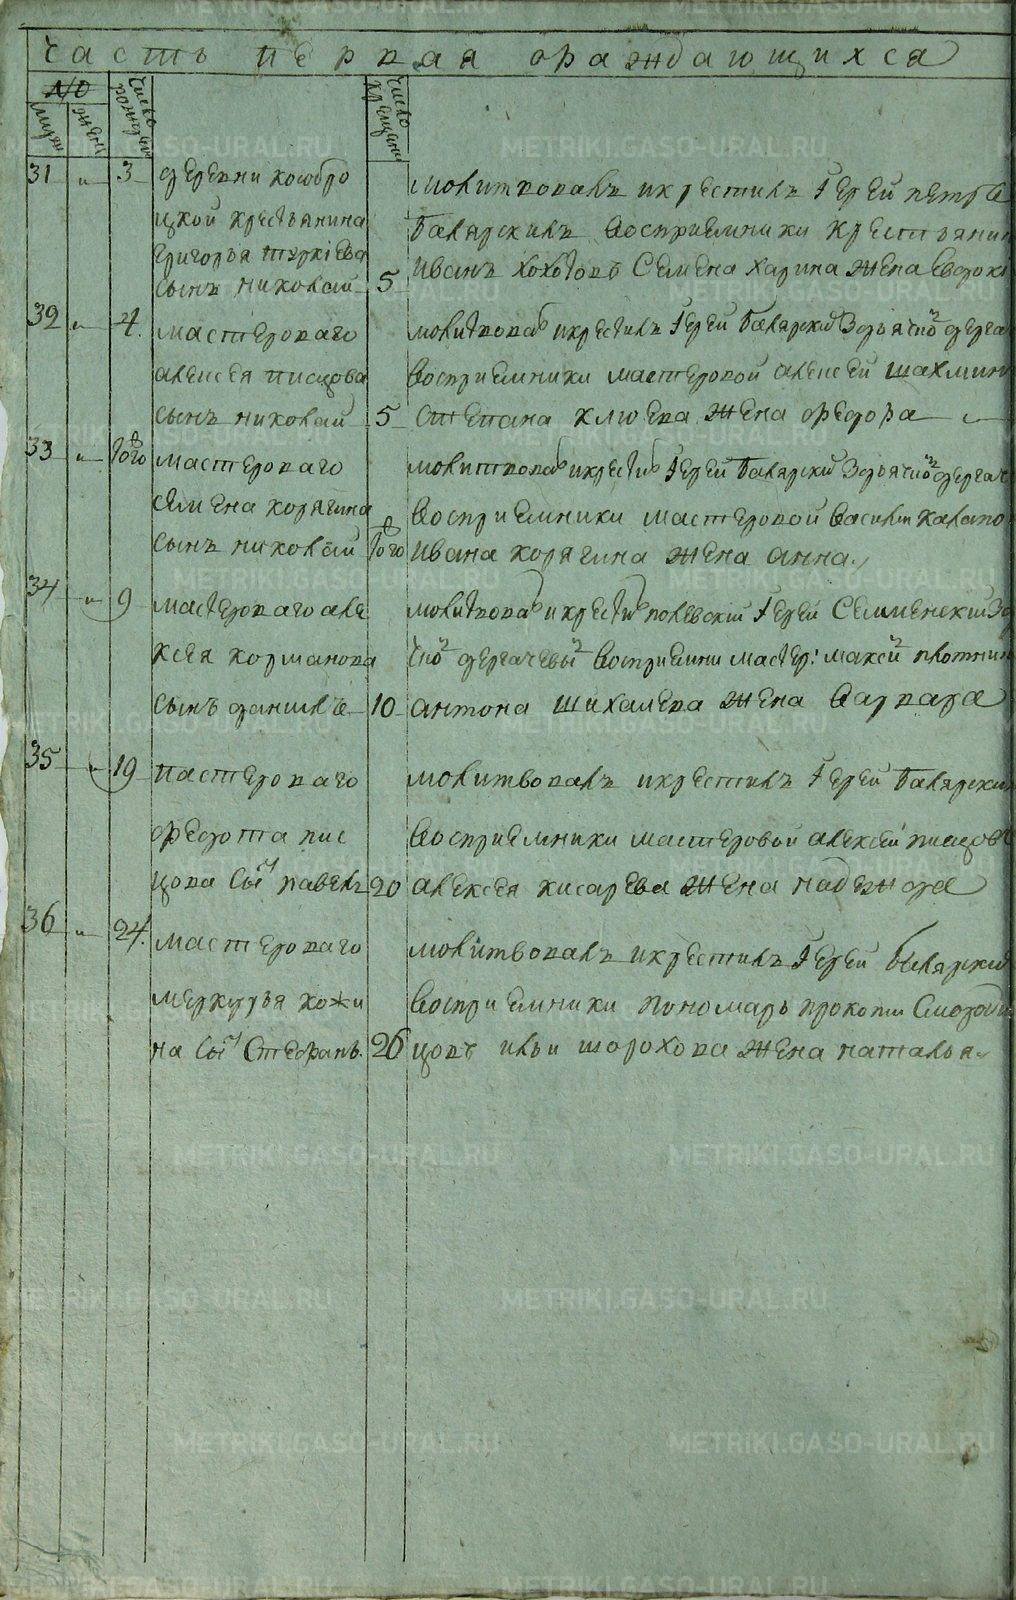 часть первая ораждающихся
№
мужеска
женска
число рождения
число крещения
31 " 3 деревни кособро
цкой крестьянина
григорья
сынъ николай 5
молитвовалъ и крестилъ Iерей петръ
Балярскихъ восприемники крестьянин
иванъ хохловъ Семена харина жена евдоки
32 " 4. мастероваго
алексея писцова
сынъ николай 5
молитвовал и крестилъ Iерей Балярски З дьячко дерга
восприемники мастеровой алексей шахмин
степана клюева жена федора
33 " того мастероваго
Семена корягина
сынъ николай того
молитвовал и крестил Iерей Балярски З дьячко дергач
восприемники мастеровой василеи
ивана корягина жена анна
34 " 9 мастероваго але
ксея корманова
сынъ данилъ 10
молитвовал и крестил полевскiи Iерей Семменскiи З дя
чко дергачевы восприемни мастер: макси плотник
антона шихалева жена варвара
35 " 19 мастероваго
федота пис
цова Сы павелъ 20
молитвовалъ и крестилъ Iерей Балярски
восприемники мастеровой алексеи писцовъ
алексея кисарева жена надежда
36 " 24. мастероваго
меркурья кожи
на Сы Стефанъ. 26
молитвовалъ и крестилъ Iерей Балярски
восприемники пономарь прокопи
цовъ ильи шорохова жена наталья
METRIKI.GASO-URAL.RU